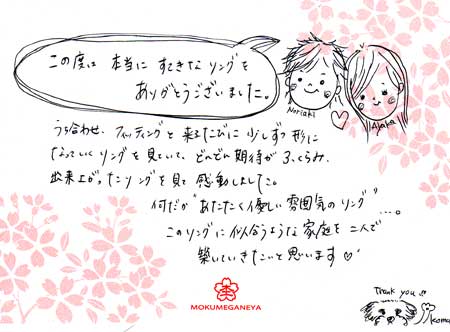 この度は 本当に すてきな リングを
ありがとうございました。
Noriaki
Ayaka
うち合わせ、フィッティングと 来るたびに 少しずつ 形に
なっていく リングを 見ていて、どんどん 期待が ふくらみ、
出来上がったリングを見て 感動しました。
何だか "あたたく優しい 雰囲気の リング"
...。
このリングに 似合うような 家庭を 二人で
築いていきたいと思います♡
Thank you
Koma
MOKUMEGANEYA